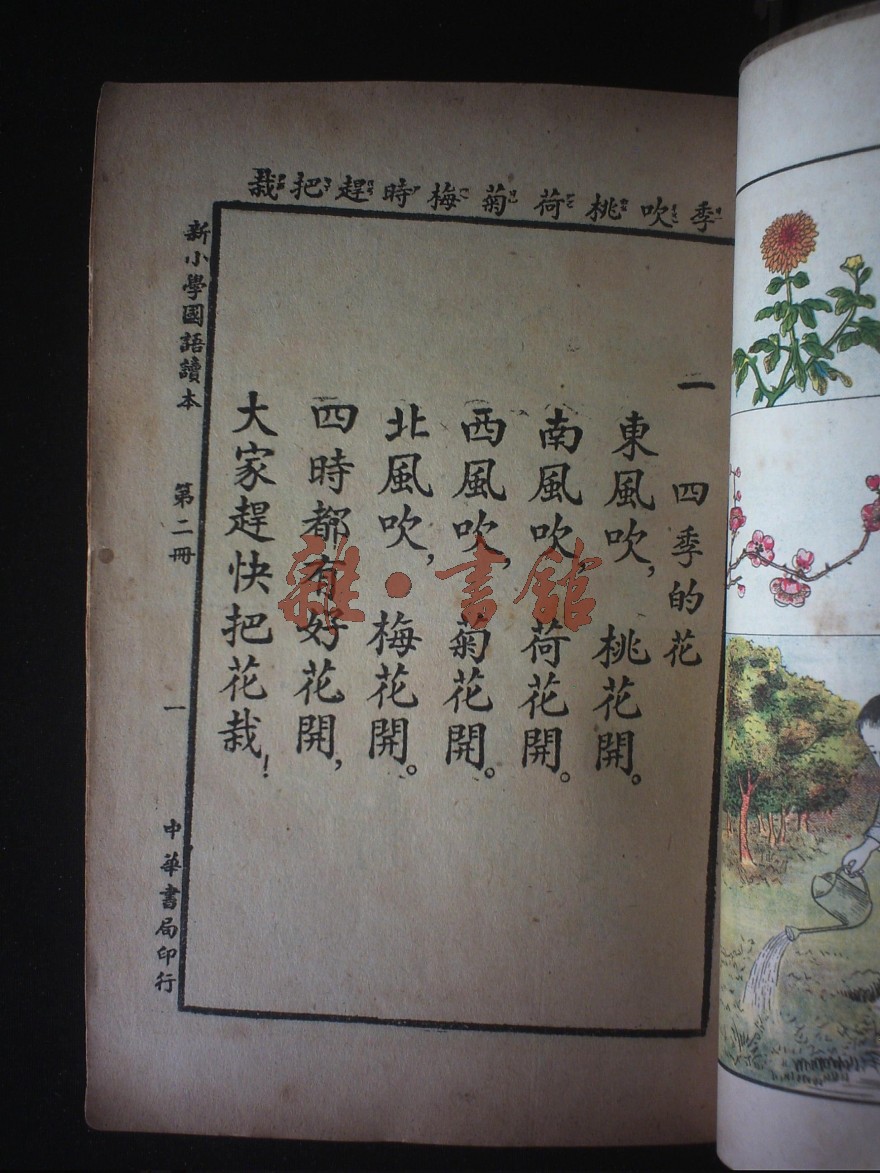 季吹桃荷菊梅時趕把栽
一 四季的花
東風吹，桃花開。
南風吹，荷花開。
西風吹，菊花開。
北風吹，梅花開。
四時都有好花開，
大家趕快把花栽！
新小學國語讀本 第二冊 一 中華書局印行
雜·書館